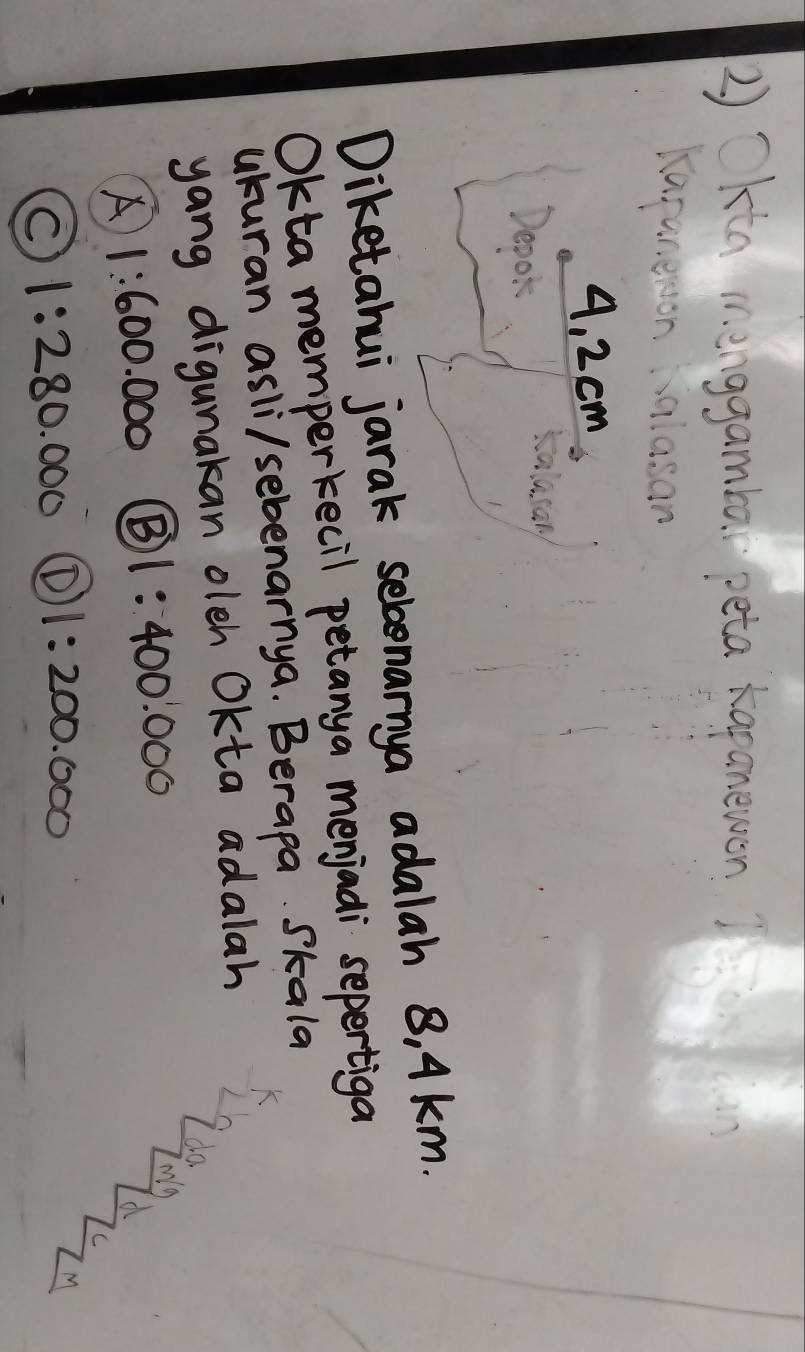 2) Okta menggambar peta kapanewon
Kapanewon Kalasan
4,2 cm
Depok
Kalasan
Diketahui jarak sebenarnya adalah 8,4 km.
Okta memperkecil petanya menjadi sepertiga
ukuran asli/sebenarnya. Berapa Skala
yang digunakan oleh Okta adalah
A 1:600.000 B 1:400.000
C 1:280.000 D 1:200.000
K
h
da
m/g
d
c
m